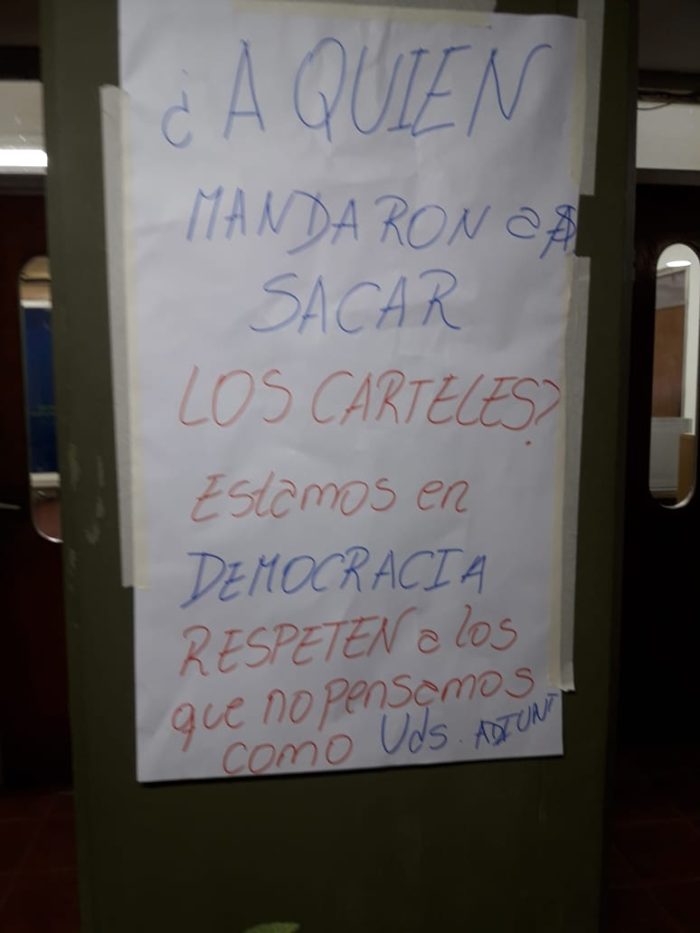 ¿A QUIEN
MANDARON a
SACAR
LOS CARTELES?
Estamos en
DEMOCRACIA
RESPETEN a los
que no pensamos
como Uds. ADIUNT